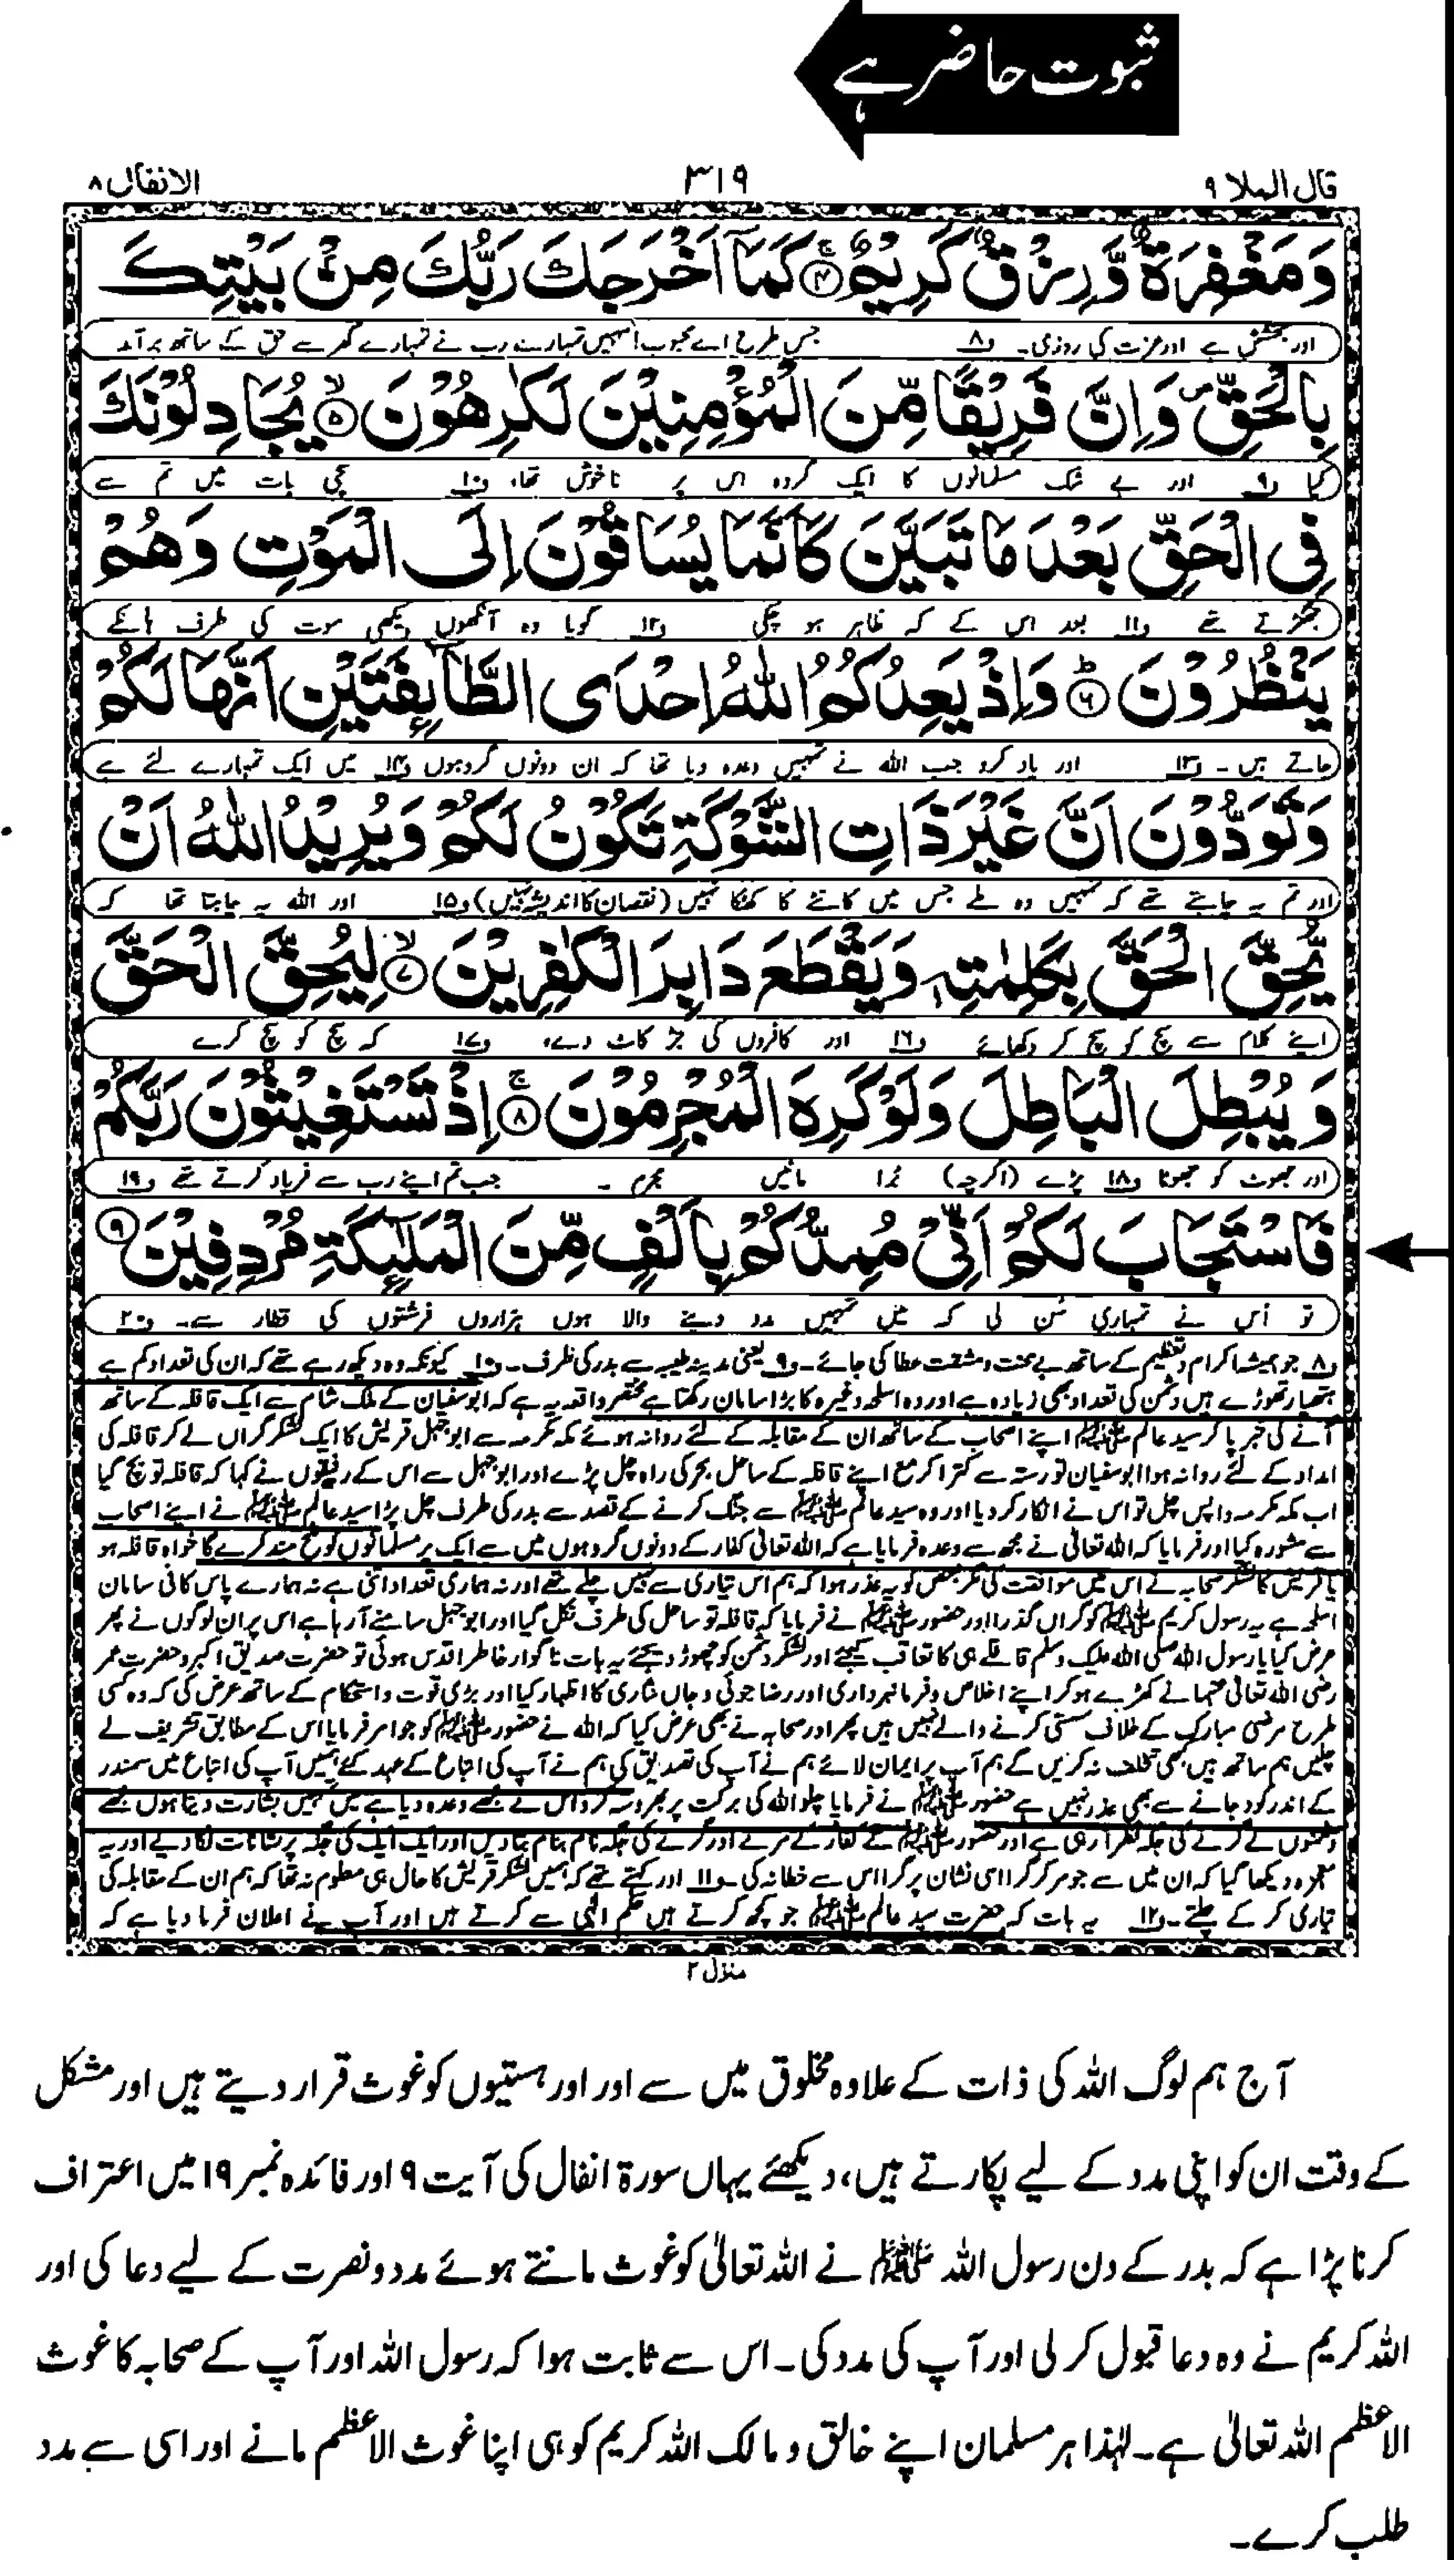 ثبوت حاضر ہے
قال الملا ۹ ۳۱۹ الانفال ۸
وَمَغْفِرَةٌ وَّرِزْقٌ كَرِيْمٌ ۴ كَمَاۤ اَخْرَجَكَ رَبُّكَ مِنْۢ بَيْتِكَ
اور بخشش ہے اور عزت کی روزی۔ و۸ جس طرح اے محبوب تمہیں تمہارے رب نے تمہارے گھر سے حق کے ساتھ برآمد
بِالْحَقِّ وَاِنَّ فَرِيْقًا مِّنَ الْمُؤْمِنِيْنَ لَكٰرِهُوْنَ ۵ يُجَادِلُوْنَكَ
کیا و۹ اور بے شک مسلمانوں کا ایک گروہ اس پر ناخوش تھا، و۱۰ سچی بات میں تم سے
فِى الْحَقِّ بَعْدَ مَا تَبَيَّنَ كَاَنَّمَا يُسَاقُوْنَ اِلَى الْمَوْتِ وَهُمْ
جھگڑتے تھے و۱۱ بعد اس کے کہ ظاہر ہو چکی و۱۲ گویا وہ آنکھوں دیکھی موت کی طرف ہانکے
يَنْظُرُوْنَ ۶ وَاِذْ يَعِدُكُمُ اللّٰهُ اِحْدَى الطَّآئِفَتَيْنِ اَنَّهَا لَكُمْ
جاتے ہیں۔ و۱۳ اور یاد کرو جب اللہ نے تمہیں وعدہ دیا تھا کہ ان دونوں گروہوں و۱۴ میں ایک تمہارے لئے ہے
وَتَوَدُّوْنَ اَنَّ غَيْرَ ذَاتِ الشَّوْكَةِ تَكُوْنُ لَكُمْ وَيُرِيْدُ اللّٰهُ اَنْ
اور تم یہ چاہتے تھے کہ تمہیں وہ ملے جس میں کانٹے کا کھٹکا نہیں (نقصان کا اندیشہ نہیں) و۱۵ اور اللہ یہ چاہتا تھا کہ
يُّحِقَّ الْحَقَّ بِكَلِمٰتِهٖ وَيَقْطَعَ دَابِرَ الْكٰفِرِيْنَ ۷ لِيُحِقَّ الْحَقَّ
اپنے کلام سے سچ کو سچ کر دکھائے و۱۶ اور کافروں کی جڑ کاٹ دے، و۱۷ کہ سچ کو سچ کرے
وَيُبْطِلَ الْبَاطِلَ وَلَوْ كَرِهَ الْمُجْرِمُوْنَ ۸ اِذْ تَسْتَغِيْثُوْنَ رَبَّكُمْ
اور جھوٹ کو جھوٹا و۱۸ پڑے (اگرچہ) بُرا مانیں مجرم۔ جب تم اپنے رب سے فریاد کرتے تھے و۱۹
فَاسْتَجَابَ لَكُمْ اَنِّىْ مُمِدُّكُمْ بِاَلْفٍ مِّنَ الْمَلٰٓئِكَةِ مُرْدِفِيْنَ ۹
تو اُس نے تمہاری سُن لی کہ میں تمہیں مدد دینے والا ہوں ہزاروں فرشتوں کی قطار سے۔ و۲۰
و۸ جو ہمیشہ اکرام و تعظیم کے ساتھ بے محنت و مشقت عطا کی جائے۔ و۹ یعنی مدینہ طیبہ سے بدر کی طرف۔ و۱۰ کیونکہ وہ دیکھ رہے تھے کہ ان کی تعداد کم ہے
ہتھیار تھوڑے ہیں دشمن کی تعداد بھی زیادہ ہے اور وہ اسلحہ وغیرہ کا بڑا سامان رکھتا ہے مختصر واقعہ یہ ہے کہ ابوسفیان کے ملک شام سے ایک قافلہ کے ساتھ
آنے کی خبر پا کر سید عالم ﷺ اپنے اصحاب کے ساتھ ان کے مقابلہ کے لئے روانہ ہوئے مکہ مکرمہ سے ابوجہل قریش کا ایک لشکر گراں لے کر قافلہ کی
امداد کے لئے روانہ ہوا ابوسفیان تو رستہ سے کترا کر مع اپنے قافلہ کے ساحل بحر کی راہ چل پڑے اور ابوجہل سے اس کے رفیقوں نے کہا کہ قافلہ تو بچ گیا
اب مکہ مکرمہ واپس چل تو اس نے انکار کردیا اور وہ سید عالم ﷺ سے جنگ کرنے کے قصد سے بدر کی طرف چل پڑا سید عالم ﷺ نے اپنے اصحاب
سے مشورہ کیا اور فرمایا کہ اللہ تعالیٰ نے مجھ سے وعدہ فرمایا ہے کہ اللہ تعالیٰ کفار کے دونوں گروہوں میں سے ایک پر مسلمانوں کو فتح مند کرے گا خواہ قافلہ ہو
یا قریش کا لشکر صحابہ نے اس میں موافقت کی مگر بعض کو یہ عذر ہوا کہ ہم اس تیاری سے نہیں چلے تھے اور نہ ہماری تعداد اتنی ہے نہ ہمارے پاس کافی سامان
اسلحہ ہے یہ رسول کریم ﷺ کو گراں گذرا اور حضور ﷺ نے فرمایا کہ قافلہ تو ساحل کی طرف نکل گیا اور ابوجہل سامنے آرہا ہے اس پر ان لوگوں نے پھر
عرض کیا یا رسول اللہ صلی اللہ علیک وسلم قافلے ہی کا تعاقب کیجئے اور لشکر دشمن کو چھوڑ دیجئے یہ بات ناگوار خاطر اقدس ہوئی تو حضرت صدیق اکبر و حضرت عمر
رضی اللہ تعالیٰ عنہما نے کھڑے ہوکر اپنے اخلاص و فرمانبرداری اور رضا جوئی و جاں نثاری کا اظہار کیا اور بڑی قوت و استحکام کے ساتھ عرض کی کہ وہ کسی
طرح مرضی مبارک کے خلاف سستی کرنے والے نہیں ہیں پھر اور صحابہ نے بھی عرض کیا کہ اللہ نے حضور ﷺ کو جو امر فرمایا اس کے مطابق تشریف لے
چلیں ہم ساتھ ہیں کبھی تخلف نہ کریں گے ہم آپ پر ایمان لائے ہم نے آپ کی تصدیق کی ہم نے آپ کی اتباع کے عہد کئے ہمیں آپ کی اتباع میں سمندر
کے اندر کود جانے سے بھی عذر نہیں ہے حضور ﷺ نے فرمایا چلو اللہ کی برکت پر بھروسہ کرو اس نے مجھے وعدہ دیا ہے میں تمہیں بشارت دیتا ہوں مجھے
دشمنوں کے گرنے کی جگہ نظر آرہی ہے اور حضور ﷺ نے کفار کے مرنے اور گرنے کی جگہ نام بنام بتادیں اور ایک ایک کی جگہ پر نشانات لگا دیے اور یہ
معجزہ دیکھا گیا کہ ان میں سے جو مر کر گرا اسی نشان پر گرا اس سے خطا نہ کی۔ و۱۱ اور کہتے تھے کہ ہمیں لشکر قریش کا حال ہی معلوم نہ تھا کہ ہم ان کے مقابلہ کی
تیاری کر کے چلتے۔ و۱۲ یہ بات کہ حضرت سید عالم ﷺ جو کچھ کرتے ہیں حکم الٰہی سے کرتے ہیں اور آپ نے اعلان فرما دیا ہے کہ
منزل ۲
آج ہم لوگ اللہ کی ذات کے علاوہ مخلوق میں سے اور اور ہستیوں کو غوث قرار دیتے ہیں اور مشکل
کے وقت ان کو اپنی مدد کے لیے پکارتے ہیں، دیکھئے یہاں سورۃ انفال کی آیت ۹ اور فائدہ نمبر ۱۹ میں اعتراف
کرنا پڑا ہے کہ بدر کے دن رسول اللہ ﷺ نے اللہ تعالیٰ کو غوث مانتے ہوئے مدد و نصرت کے لیے دعا کی اور
اللہ کریم نے وہ دعا قبول کر لی اور آپ کی مدد کی۔ اس سے ثابت ہوا کہ رسول اللہ اور آپ کے صحابہ کا غوث
الاعظم اللہ تعالیٰ ہے۔ لہٰذا ہر مسلمان اپنے خالق و مالک اللہ کریم کو ہی اپنا غوث الاعظم مانے اور اسی سے مدد
طلب کرے۔